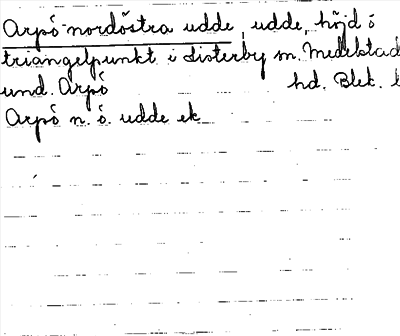 Arpö nordöstra udde, udde, höjd ö
triangelpunkt i Listerby sn. Medelstad
und. Arpö hd. Blek. l
Arpö n. ö. udde ek